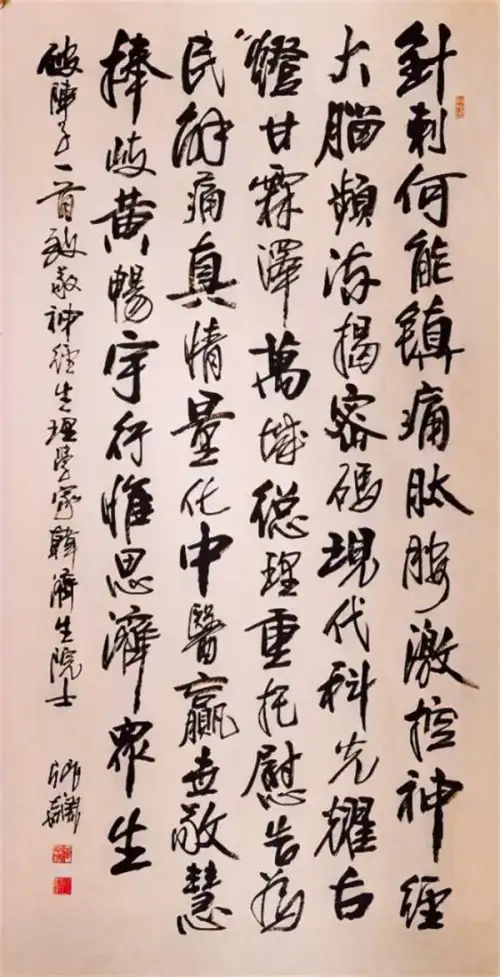 針刺何能鎮痛肽胺激控神經
大腦頻深揭密碼現代科光耀古
燈甘霖澤萬城總理重托慰告為
民解痛真情量化中醫贏世敬慧
捧岐黃暢宇行惟思濟眾生
破陣子一首致敬神經生理學家韓濟生院士